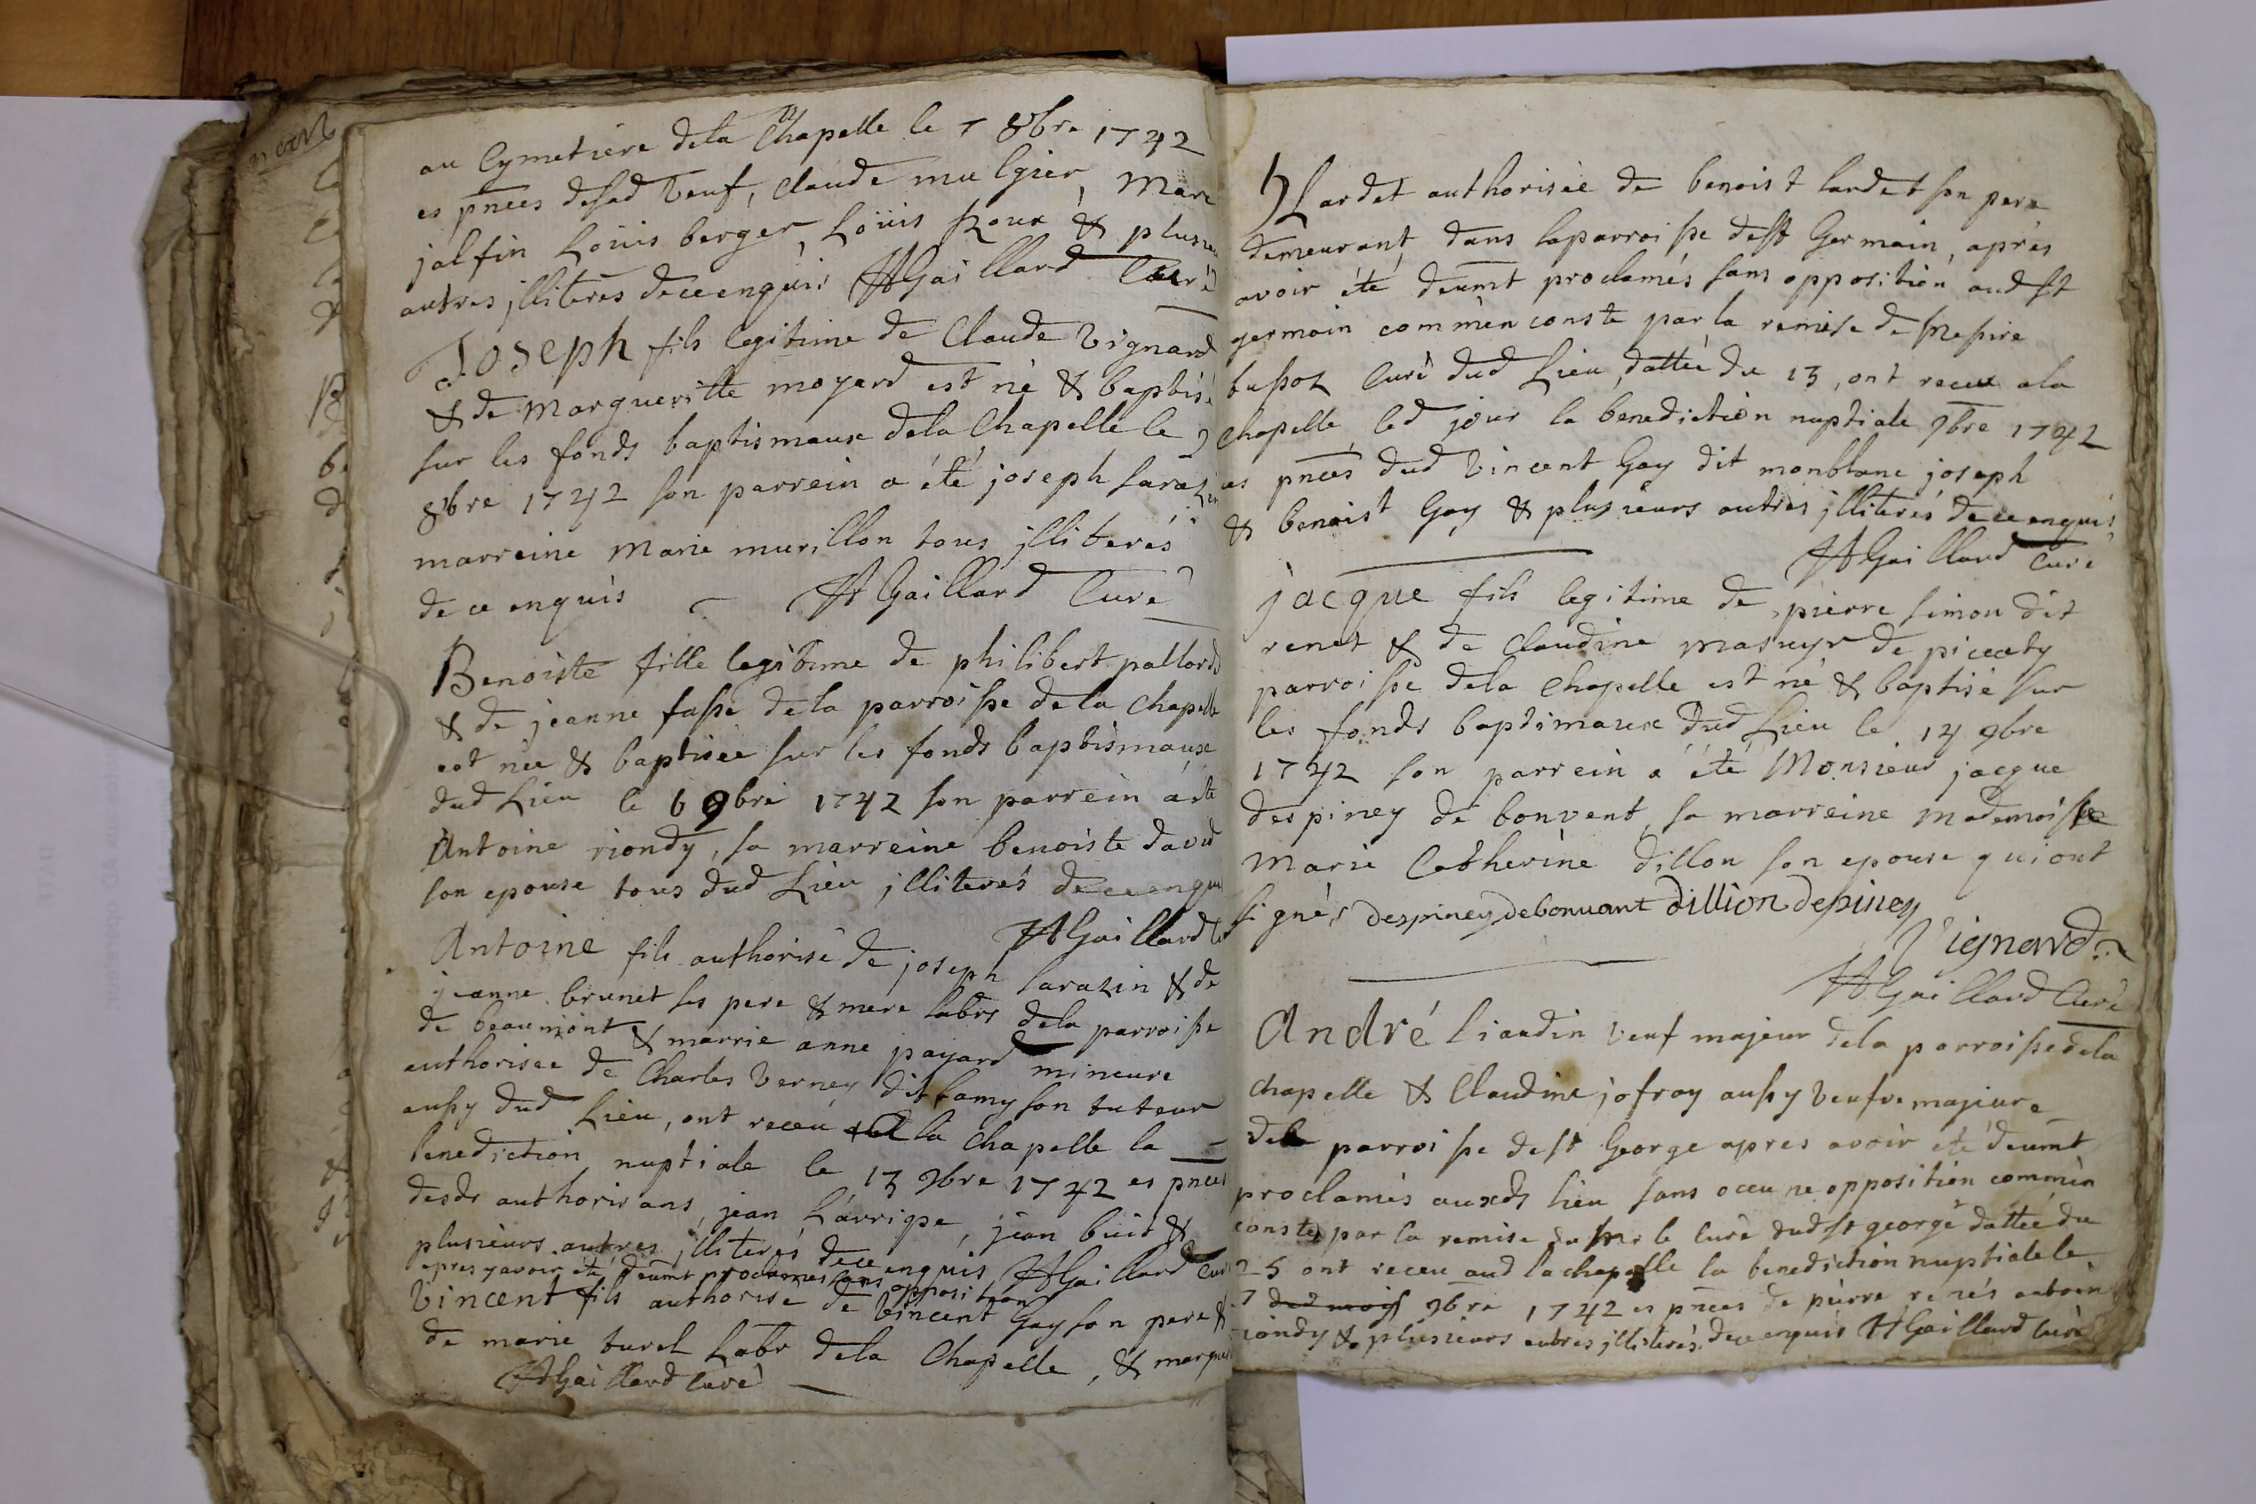 au Cymetiere dela Chapelle le 7 8bre 1742
es pnces desad veuf, Claude mulgier, Marc
jalfin Loüis berger, Loüis Roux & plusieu
autres jlliterés dece enquis AGaillard Curé
Joseph fils legitime de Claude Vignard
& de Margueritte moyard est né & baptisé
sur les fonds baptismaux dela Chapelle le 9
8bre 1742 son parrein a été joseph sarazin
marreine Marie murillon tous jlliterés
de ce enquis AGaillard Curé
Benoiste fille legitime de philibert pallord
& de jeanne fasse dela parroisse dela Chapelle
est née & baptisée sur les fonds baptismaux
dud Lieu le 6 9bre 1742 son parrein a été
Antoine riondy, sa marreine benoiste david
son epouse tous dud Lieu jlliterés dece enquis
AGaillard
Antoine fils authorisé de joseph sarazin & de
jeanne brunet ses pere & mere labrs dela parroisse
de beaumont & marrie anne payard mineure
authorisee de Charles Verney dit lamy son tuteur
aussy dud Lieu, ont receu a la Chapelle la
benediction nuptiale le 13 9bre 1742 es pnces
desds authorisans, jean Larrige, jean buis &
plusieurs autres jlliterés dece enquis AGaillard Curé
apres yavoir été deumt proclames sans opposition
Vincent fils authorise de Vincent Gay son pere &
de marie turel Labr dela Chapelle, & margue
AGaillard Curé
Lardet authorisée de benoist lardet son pere
demeurant dans laparroisse dest Germain, aprés
avoir été deumt proclamés sans opposition aud st
germain comme en conste par la remise de Messire
bussoz Curé dud Lieu, dattée du 13, ont receu ala
Chapelle led jour la benediction nuptiale 9bre 1742
es pnces dud Vincent Gay dit monblanc joseph
& benoist Gay & plusieurs autres jlliterés dece enquis
AGaillard Curé
jacque fils legitime de pierre simon dit
renet & de Claudine masuyr de piccoty
parroisse dela Chapelle est né & baptisé sur
les fonds baptimaux dud Lieu le 14 9bre
1742 son parrein a été Monsieur jacque
despiney de bonvent, sa marreine mademoiselle
Marie Catherine dillon son epouse qui ont
signés Despiney debonuant dillion depiney
Vignard
AGaillard Curé
André liaudin veuf majeur dela parroisse dela
chapelle & Claudine jofray aussy veufve majeure
dela parroisse dest George apres avoir été deumt
proclamés auxds lieu sans aucune opposition comme en
conste par la remise du Mr le Curé dudst george dattée du
25 ont receu aud lachapelle la benediction nuptiale le
7 dud mois 9bre 1742 es pnces de pierre renés antoin
riondy & plusieurs autres jlliterés dece enquis AGaillard Curé